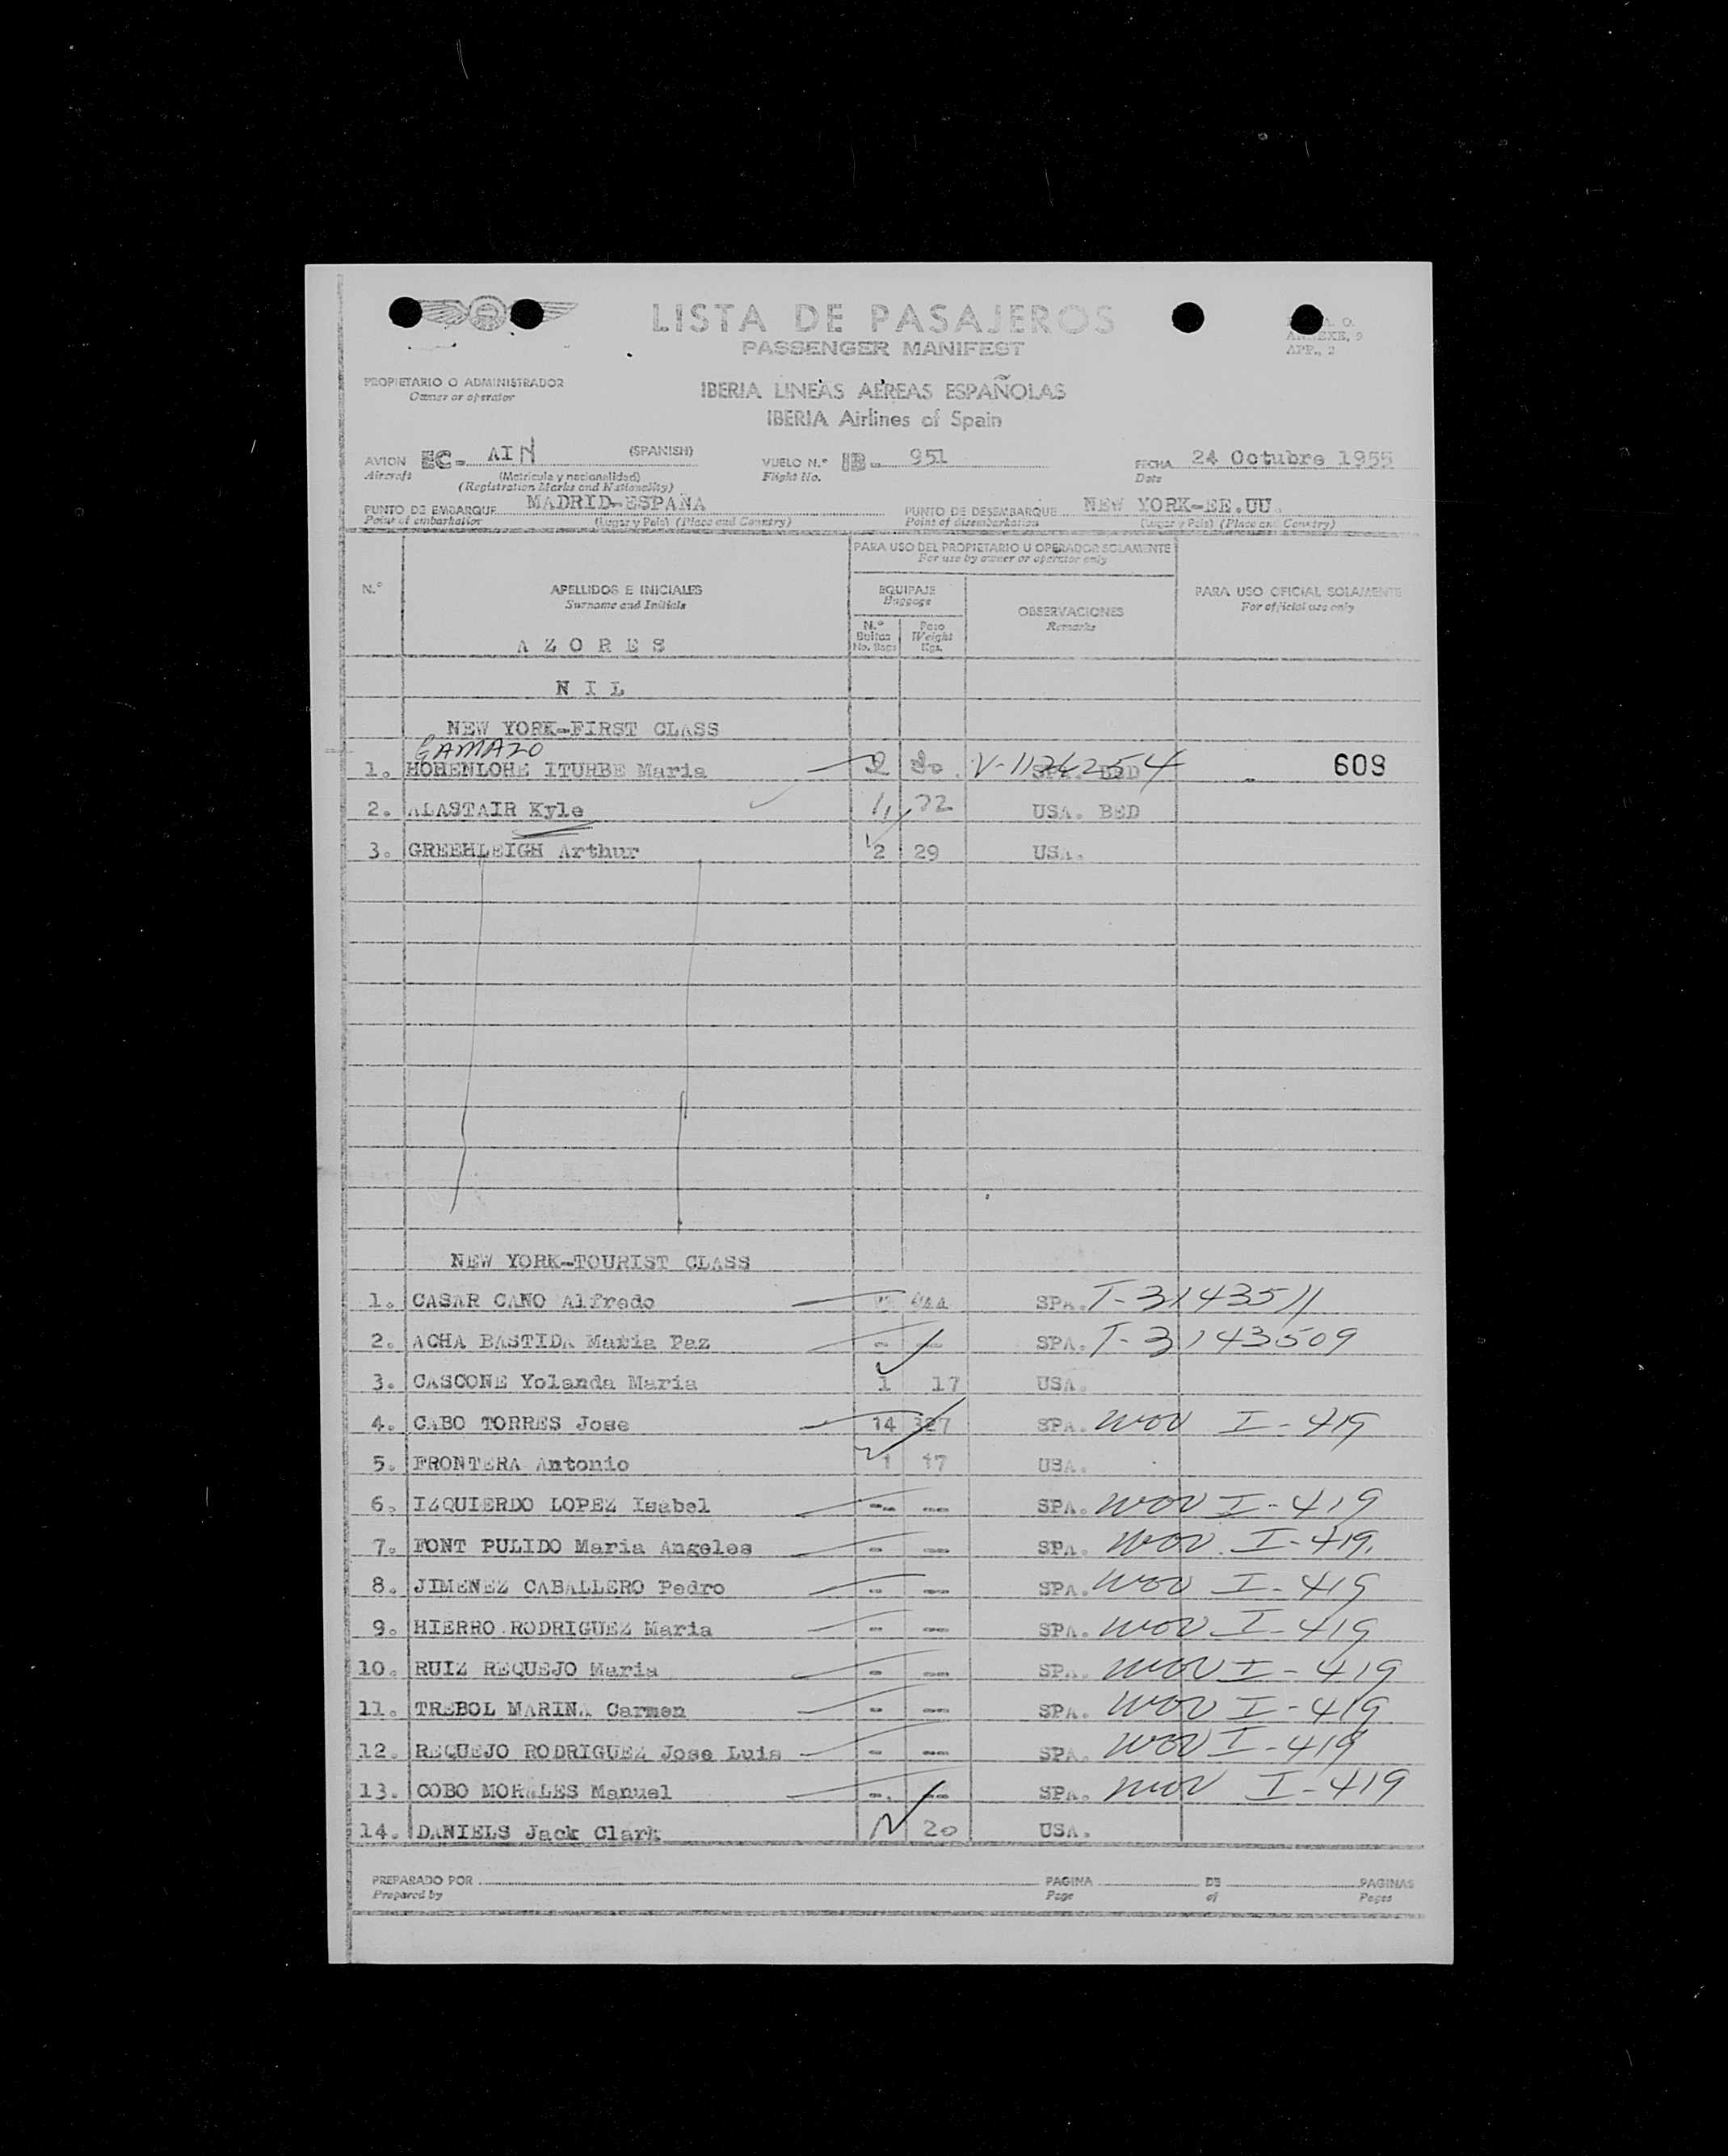 LISTA DE PASAJEROS
PASSENGER MANIFEST
A. O.
ANNEXE, 9
APP., 2
PROPIETARIO O ADMINISTRADOR
Owner or operator
IBERIA LINEAS AEREAS ESPAÑOLAS
IBERIA Airlines of Spain
AVION EC- AIN (SPANISH) VUELO N.º IB- 951 FECHA 24 Octubre 1955
Aircraft (Matrícula y nacionalidad) Flight No. Date
(Registration Marks and Nationality)
PUNTO DE EMBARQUE MADRID-ESPAÑA PUNTO DE DESEMBARQUE NEW YORK-EE.UU.
Point of embarkation (Lugar y País) (Place and Country) Point of disembarkation (Lugar y País) (Place and Country)
PARA USO DEL PROPIETARIO U OPERADOR SOLAMENTE
For use by owner or operator only
N.º APELLIDOS E INICIALES EQUIPAJE PARA USO OFICIAL SOLAMENTE
Surname and Initials Baggage For official use only
OBSERVACIONES
Remarks
N.º Bultos Peso
No. Bags Weight Kgs.
AZORES
NIL
NEW YORK-FIRST CLASS
GAMAZO
1. HOHENLOHE ITURBE Maria V-1124254 SPA. BED 609
2. ALASTAIR Kyle 1 22 USA. BED
3. GREEHLEIGH Arthur 2 29 USA.
NEW YORK-TOURIST CLASS
1. CASAR CANO Alfredo SPA. T-3143511
2. ACHA BASTIDA Maria Paz - -- SPA. T-3143509
3. CASCONE Yolanda Maria 1 17 USA.
4. CABO TORRES Jose 14 327 SPA. WOV I-419
5. FRONTERA Antonio 1 17 USA.
6. IZQUIERDO LOPEZ Isabel -- -- SPA. WOV I-419
7. FONT PULIDO Maria Angeles - -- SPA. WOV. I-419.
8. JIMENEZ CABALLERO Pedro - -- SPA. WOV I-419
9. HIERRO RODRIGUEZ Maria - -- SPA. WOV I-419
10. RUIZ REQUEJO Maria - -- SPA. WOV I-419
11. TREBOL MARINA Carmen - -- SPA. WOV I-419
12. REQUEJO RODRIGUEZ Jose Luis - -- SPA. WOV I-419
13. COBO MORALES Manuel - -- SPA. WOV I-419
14. DANIELS Jack Clark 20 USA.
PREPARADO POR PAGINA DE PAGINAS
Prepared by Page of Pages